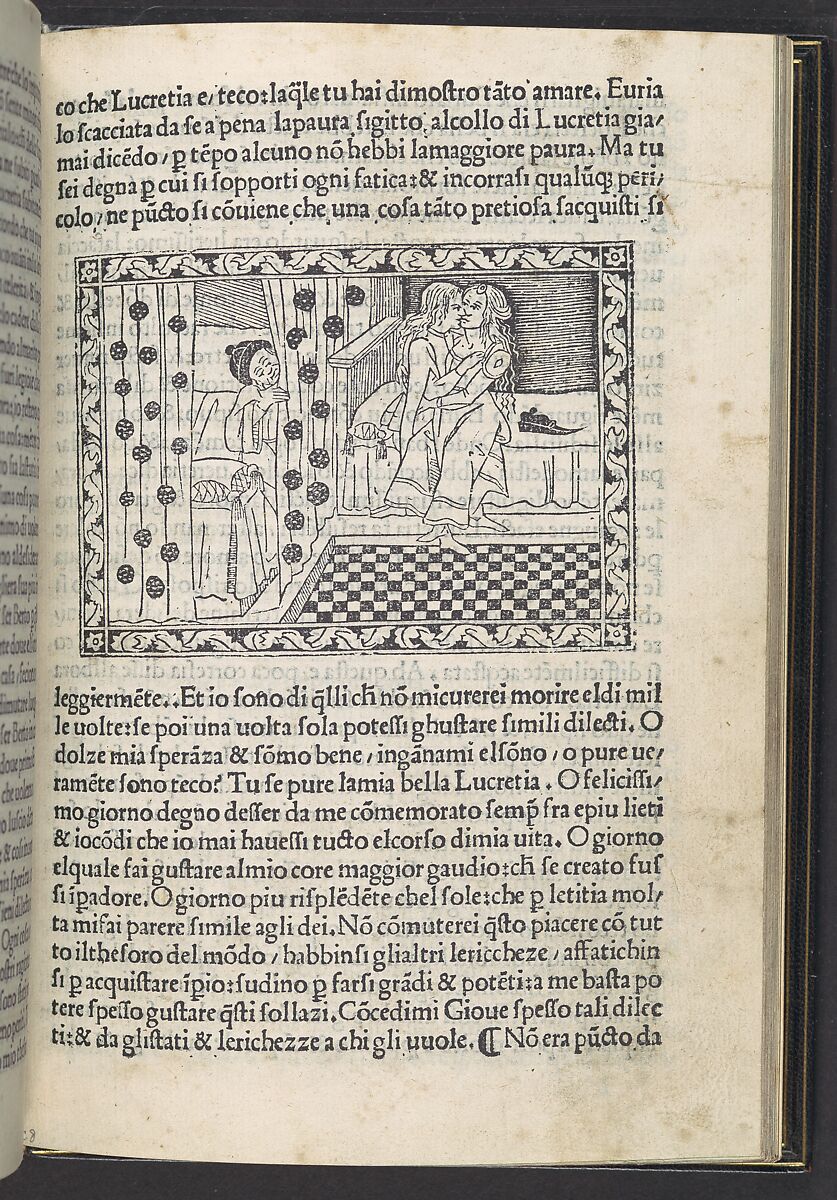 co che Lucretia e/ teco:laq̃le tu hai dimoſtro tãto amare. Euria
lo ſcacciata da ſe a pena lapaura ſigitto alcollo di Lucretia gia/
mai dicẽdo/ ꝑ tẽpo alcuno nõ hebbi lamaggiore paura. Ma tu
ſei degna ꝑ cui ſi ſopporti ogni fatica:& incorraſi qualũqꝫ peri/
colo/ ne pũcto ſi cõuiene che una coſa tãto pretioſa ſacquiſti ſi
leggiermẽte. Et io ſono di q̃lli ch̃ nõ micurerei morire eldi mil
le uolte:ſe poi una uolta ſola poteſſi ghuſtare ſimili dilecti. O
dolze mia ſperãza & ſõmo bene/ ingãnami elſõno/ o pure ue/
ramẽte ſono teco? Tu ſe pure lamia bella Lucretia. O feliciſſi/
mo giorno degno deſſer da me cõmemorato ſemp̃ fra epiu lieti
& iocõdi che io mai haueſſi tucto elcorſo dimia uita. O giorno
elquale fai guſtare almio core maggior gaudio:ch̃ ſe creato fuſ
ſi ĩpadore. O giorno piu riſplẽdẽte chel ſole:che ꝑ letitia mol/
ta mifai parere ſimile agli dei. Nõ cõmuterei q̃ſto piacere cõ tut
to iltheſoro del mõdo/ habbinſi glialtri lericcheze/ affatichin
ſi ꝑ acquiſtare ĩpio:ſudino ꝑ farſi grãdi & potẽti:a me baſta po
tere ſpeſſo guſtare q̃ſti ſollazi. Cõcedimi Gioue ſpeſſo tali dilec
ti:& da gliſtati & lerichezze a chi gli uuole. ¶ Nõ era pũcto da